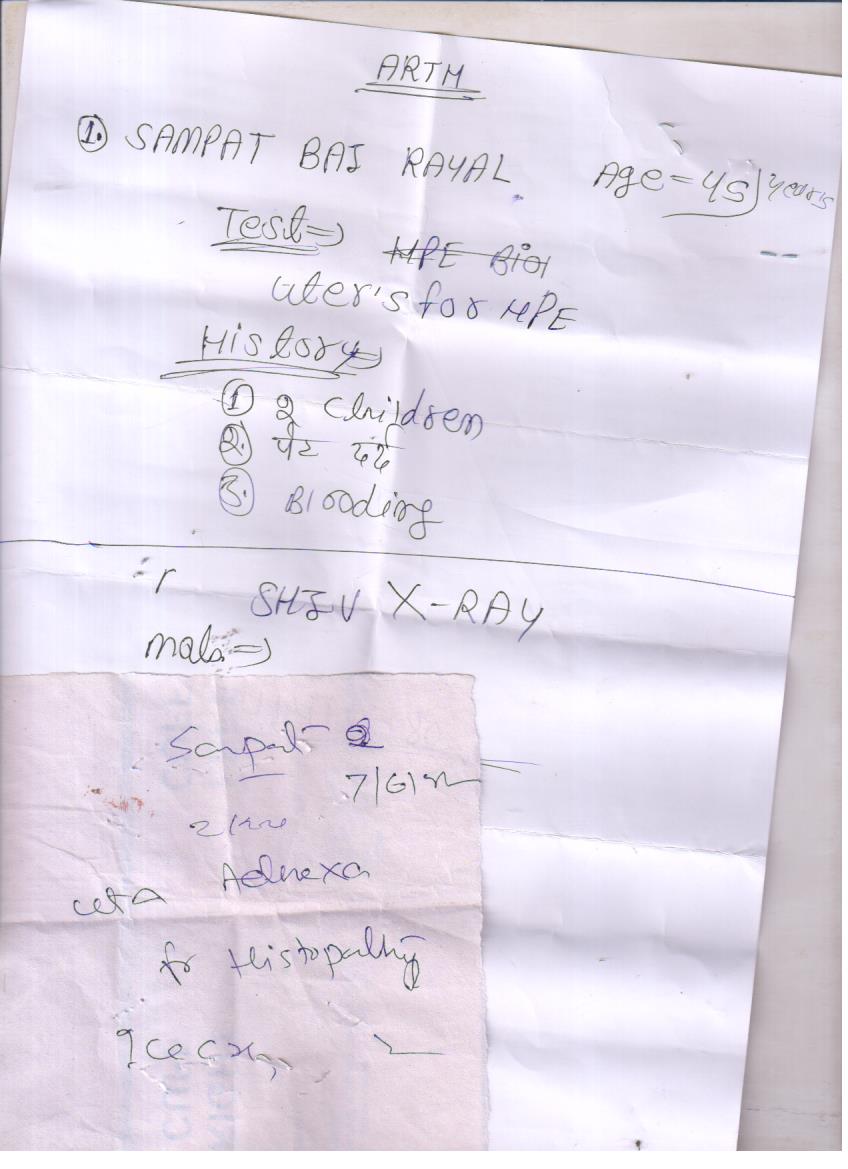 ARTM
1. SAMPAT BAI RAYAL Age = 45 years
Test ⇒ HPE Bio
Uter's for HPE
History ⇒
1 2 Children
2. पेट दर्द
3. Blooding
SHIV X-RAY
Sampat
7/6/
Adnexa
for Histopathy